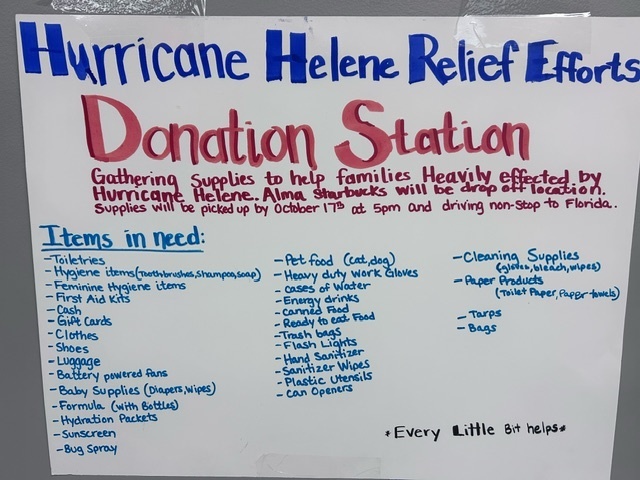 Hurricane Helene Relief Efforts
Donation Station
Gathering Supplies to help families Heavily effected by
Hurricane Helene. Alma Starbucks will be drop off location.
Supplies will be picked up by October 17th at 5pm and driving non-stop to Florida.
Items in need:
-Toiletries
-Hygiene items(toothbrushes,shampoo,soap)
-Feminine Hygiene items
-First Aid Kits
-Cash
-Gift Cards
-Clothes
-Shoes
-Luggage
-Battery powered fans
-Baby Supplies (Diapers,wipes)
-Formula (with Bottles)
-Hydration Packets
-Sunscreen
-Bug Spray
-Pet food (cat,dog)
-Heavy duty Work Gloves
-cases of Water
-Energy drinks
-canned Food
-Ready to eat Food
-Trash bags
-Flash Lights
-Hand Sanitizer
-Sanitizer Wipes
-Plastic Utensils
-Can Openers
-Cleaning Supplies
(gloves,bleach,wipes)
-Paper Products
(Toilet Paper,Paper towels)
-Tarps
-Bags
*Every Little Bit helps*